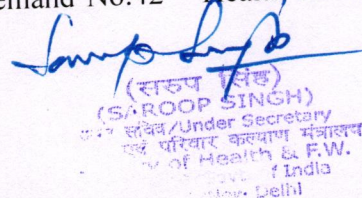 No.42
(सरुप सिंह)
(SAROOP SINGH)
सचिव/Under Secretary
एवं परिवार कल्याण मंत्रालय
of Health & F.W.
f India
Delhi